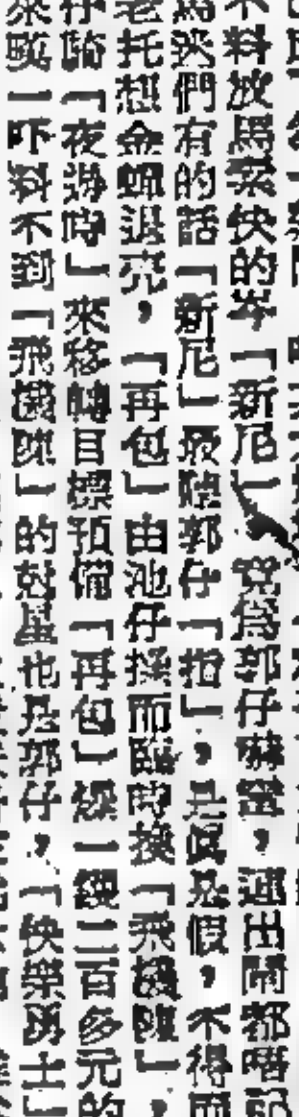 不料放馬索快的岑「新尼」竟為郭仔嚇窒，連出閘都唔
馬迷們有的話「新尼」最隂郭仔「揸」，是眞是假，不得而
老托想金蟬退壳，「再包」由池仔操而臨時換「飛機陳」，
仔騎「夜遊時」來移轉目標預備「再包」爆一鑊二百多元的
一吓料不到「飛機陳」的尅星也是郭仔，「快樂勇士」